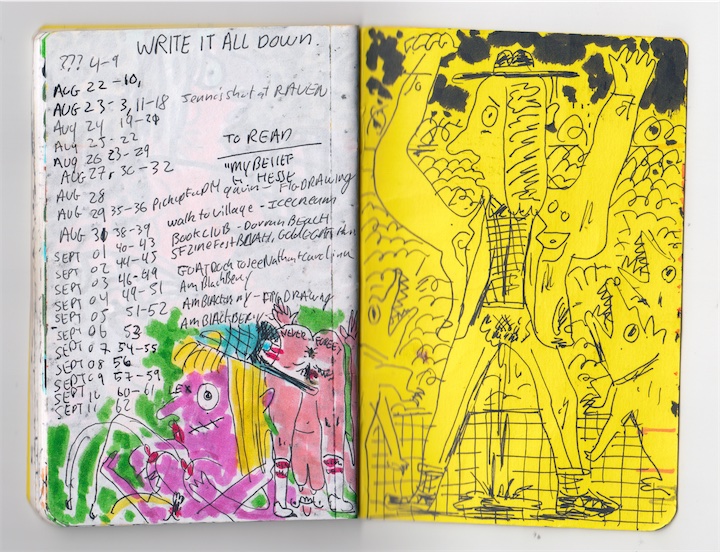 WRITE IT ALL DOWN.
??? 4-9
AUG 22-10,
AUG 23-3, 11-18 Jennis shut at RAVEN
AUG 24 19-20
AUG 25-22
TO READ
AUG 26 23-29
"MY BELIEF
AUG 27, 30-32
HESSE
AUG 28
Pickup FunDM gavin - FIGDRAWING
AUG 29 35-36
walk to village - Icecream
AUG 38-39
BOOKCLUB - Dorran BEACH
SEPT 01 40-43
SFZineFest
SEPT 02 44-45
GOATRock to See Nathan & Carolina
SEPT 03 46-49
Am BlackBerry
SEPT 04 49-51
FIGDRAWING
SEPT 05 51-52
AmBLACKBERRY
SEPT 06 53
NEVER FORGET
SEPT 07 54-55
SEPT 08 56
SEPT 09 57-59
SEPT 10 60-61 LEX
SEPT 11 62